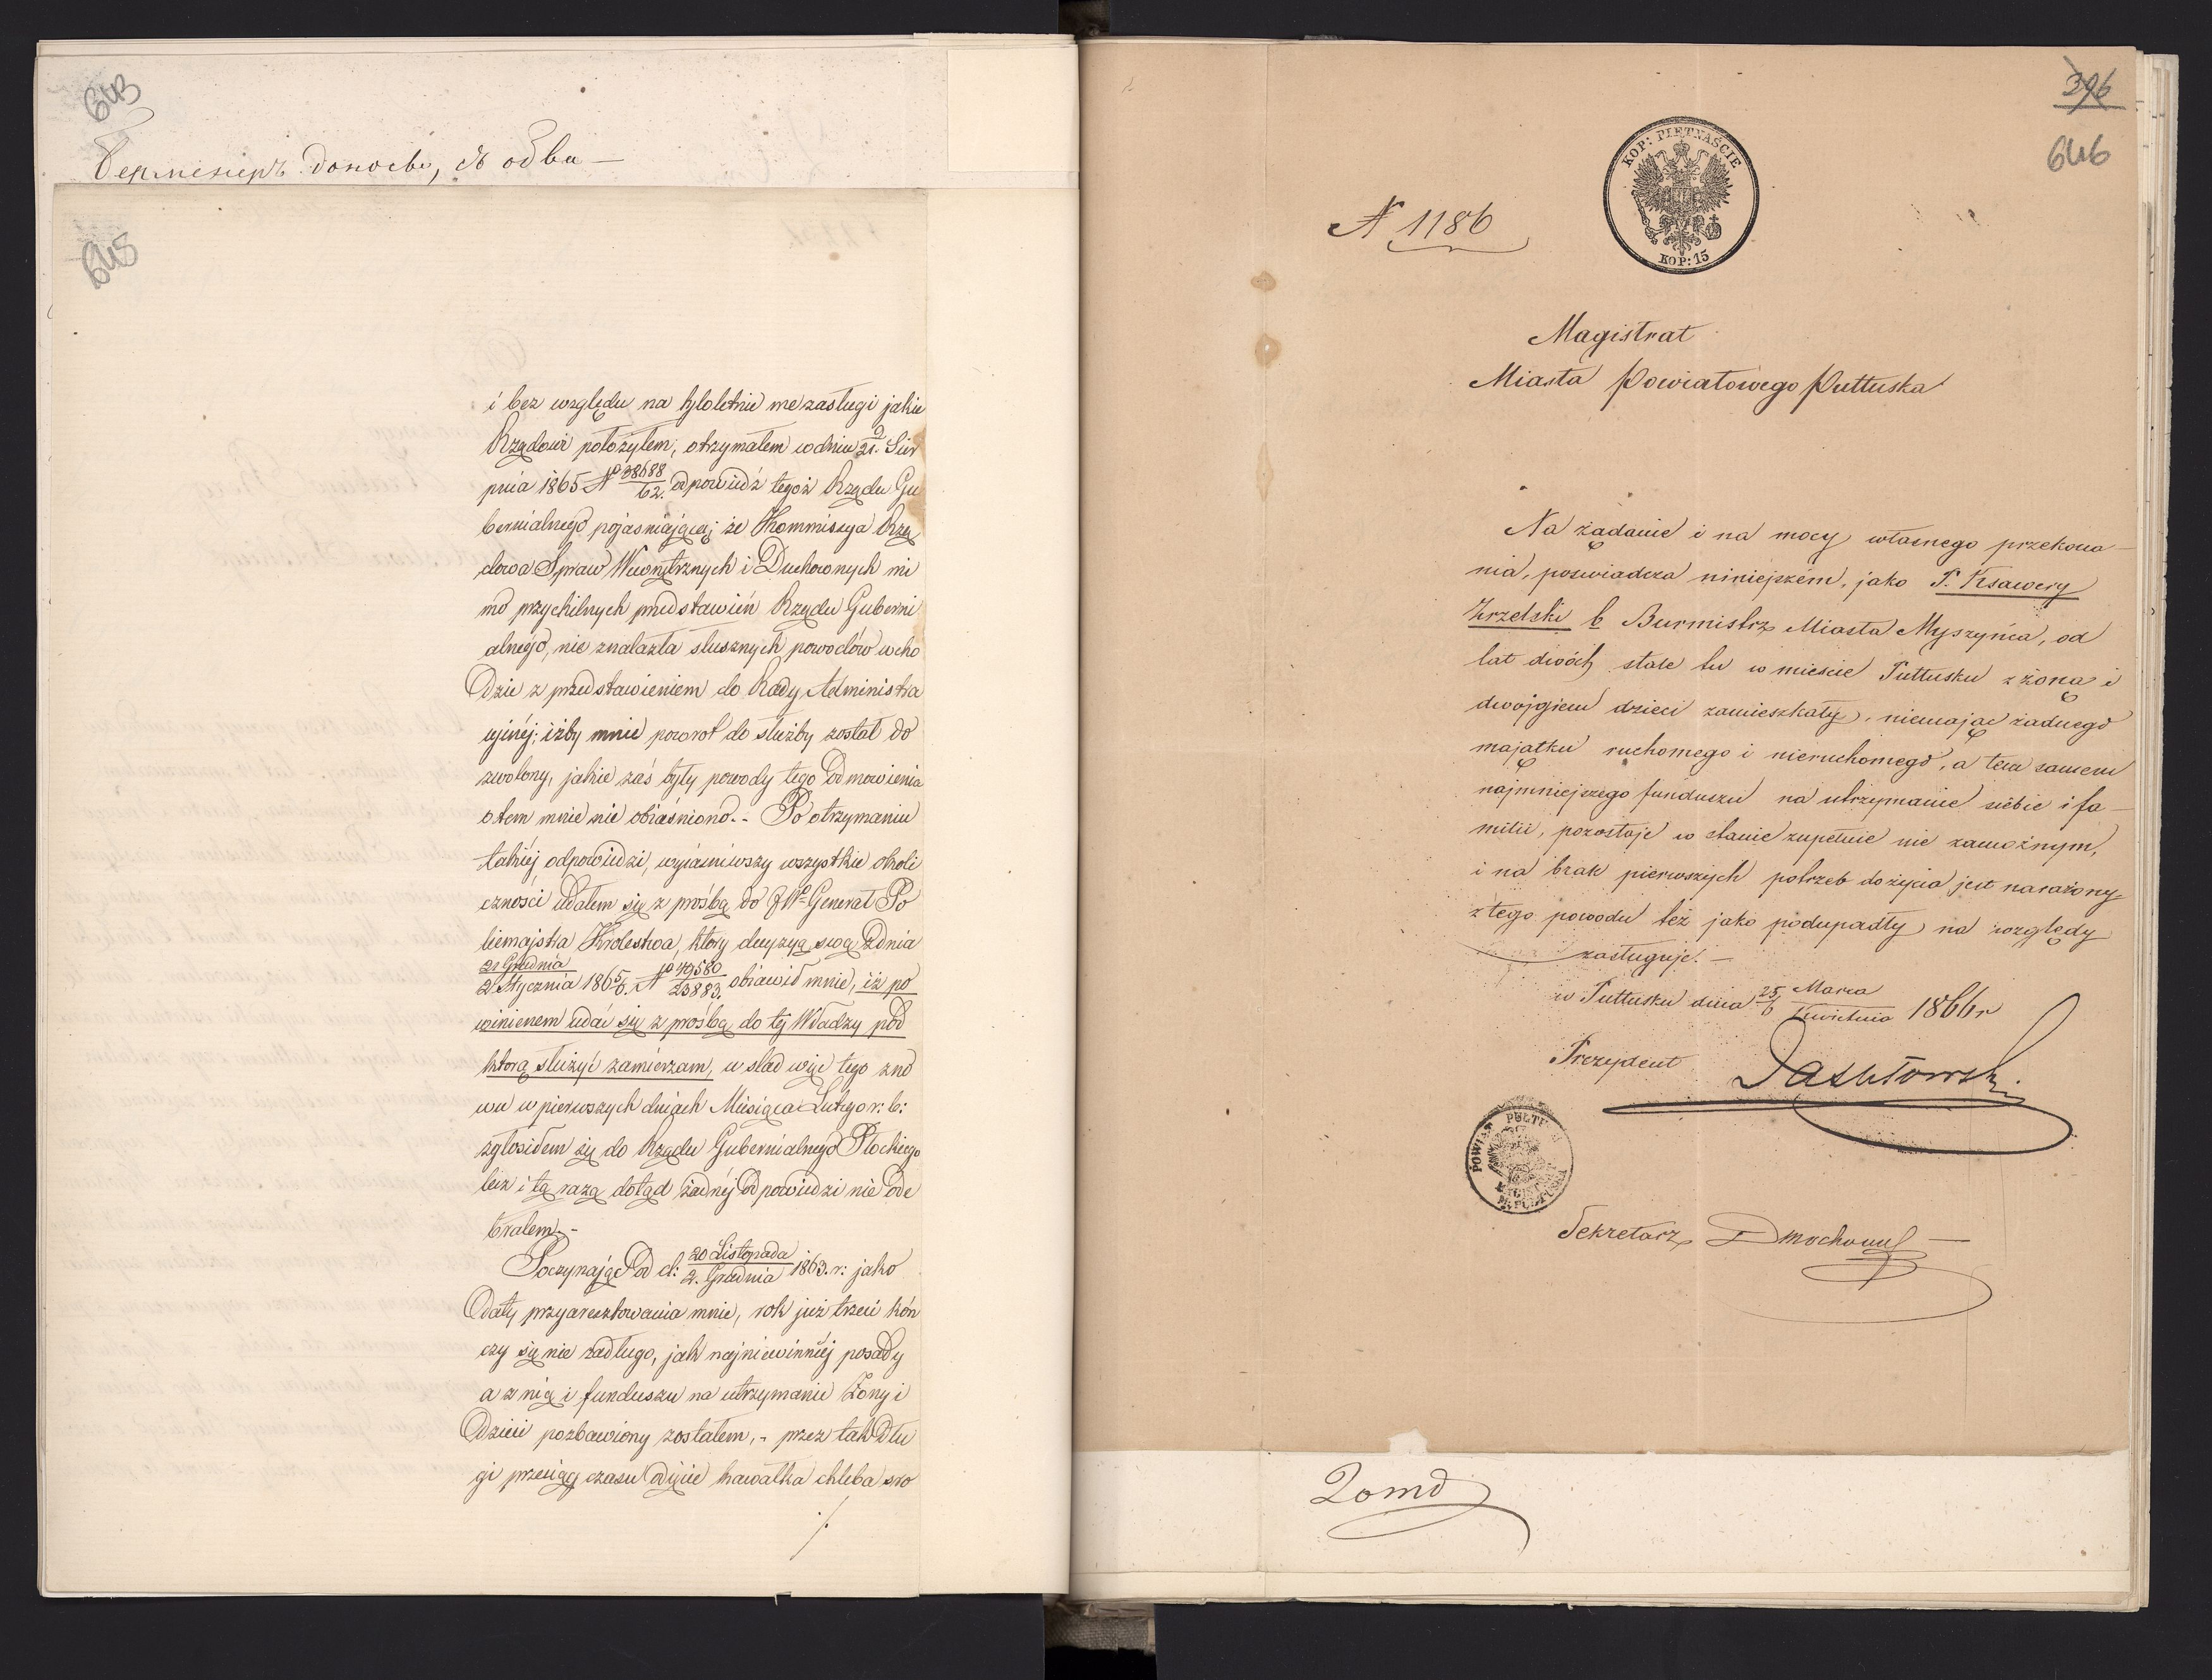 643
доноси, съ объя—
645
i bez względu na tyloletnie me zasługi jakie
Rządowi położyłem, otrzymałem w dniu 9/21. Sier
pnia 1865 No 38688/62. odpowiedź tegoż Rządu Gu
bernialnego pojasniającej że Kommissya Rzą
dowa Spraw Wewnętrznych i Duchownych mi
mo przychilnych przedstawień Rządu Guberni
alnego, nie znalazła słusznych powodów wcho
dzić z przedstawieniem do Rady Administra
cyjnéj; iżby mnie powrot do służby został do
zwolony, jakie zaś były powody tego odmowienia
o tem mnie nie obiaśniono.- Po otrzymaniu
takiéj odpowiedzi, wyiaśniwszy wszystkie okoli
czności udałem się z prośbą do JWo Generał Po
licmajstra Królestwa, ktory decyzyą swą z dnia
21 Grudnia/2 Stycznia 1865/6. No 49580/23883. obiawił mnie, iż po
winienem udać się z prośbą do téj Władzy pod
którą służyć zamierzam, w slad więc tego zno
wu w pierwszych dniach Miesiąca Lutego r: b:
zgłosiłem się do Rządu Gubernialnego Płockiego
lecz i tą razą dotąd żadnéj odpowiedzi nie ode
brałem.-
Poczynając od d: 20 Listopada/2. Grudnia 1863. r: jako
daty przyaresztowania mnie, rok już trzeci koń
czy się nie zadługo, jak najniewinniéj posady
a z nią i funduszu na utrzymanie Żony i
Dzieci pozbawiony zostałem,- przez tak dłu
gi przeciąg czasu kawałka chleba sro
./.
396
646
KOP: PIĘTNAŚCIE
KOP: 15
N 1186
Magistrat
Miasta Powiatowego Pułtuska
Na żądanie i na mocy własnego przekona-
nia, poswiadcza niniejszém, jako P. Ksawery
Zrzelski b Burmistrz Miasta Myszyńca, od
lat dwóch stale tu w miescie Pułtusku z żoną i
dwojgiem dzieci zamieszkały, niemając żadnego
majątku ruchomego i nieruchomego, a tem samem
najmniejszego funduszu na utrzymanie siebie i fa-
milii, pozostaje w stanie zupełnie nie zamożnym,
i na brak pierwszych potrzeb do życia jest narażony
z tego powodu też jako podupadły na względy
zasługuje.-
w Pułtusku dnia 25/6 Marca/Kwietnia 1866 r
Prezydent
POWIAT PUŁTUSKI
Sekretarz